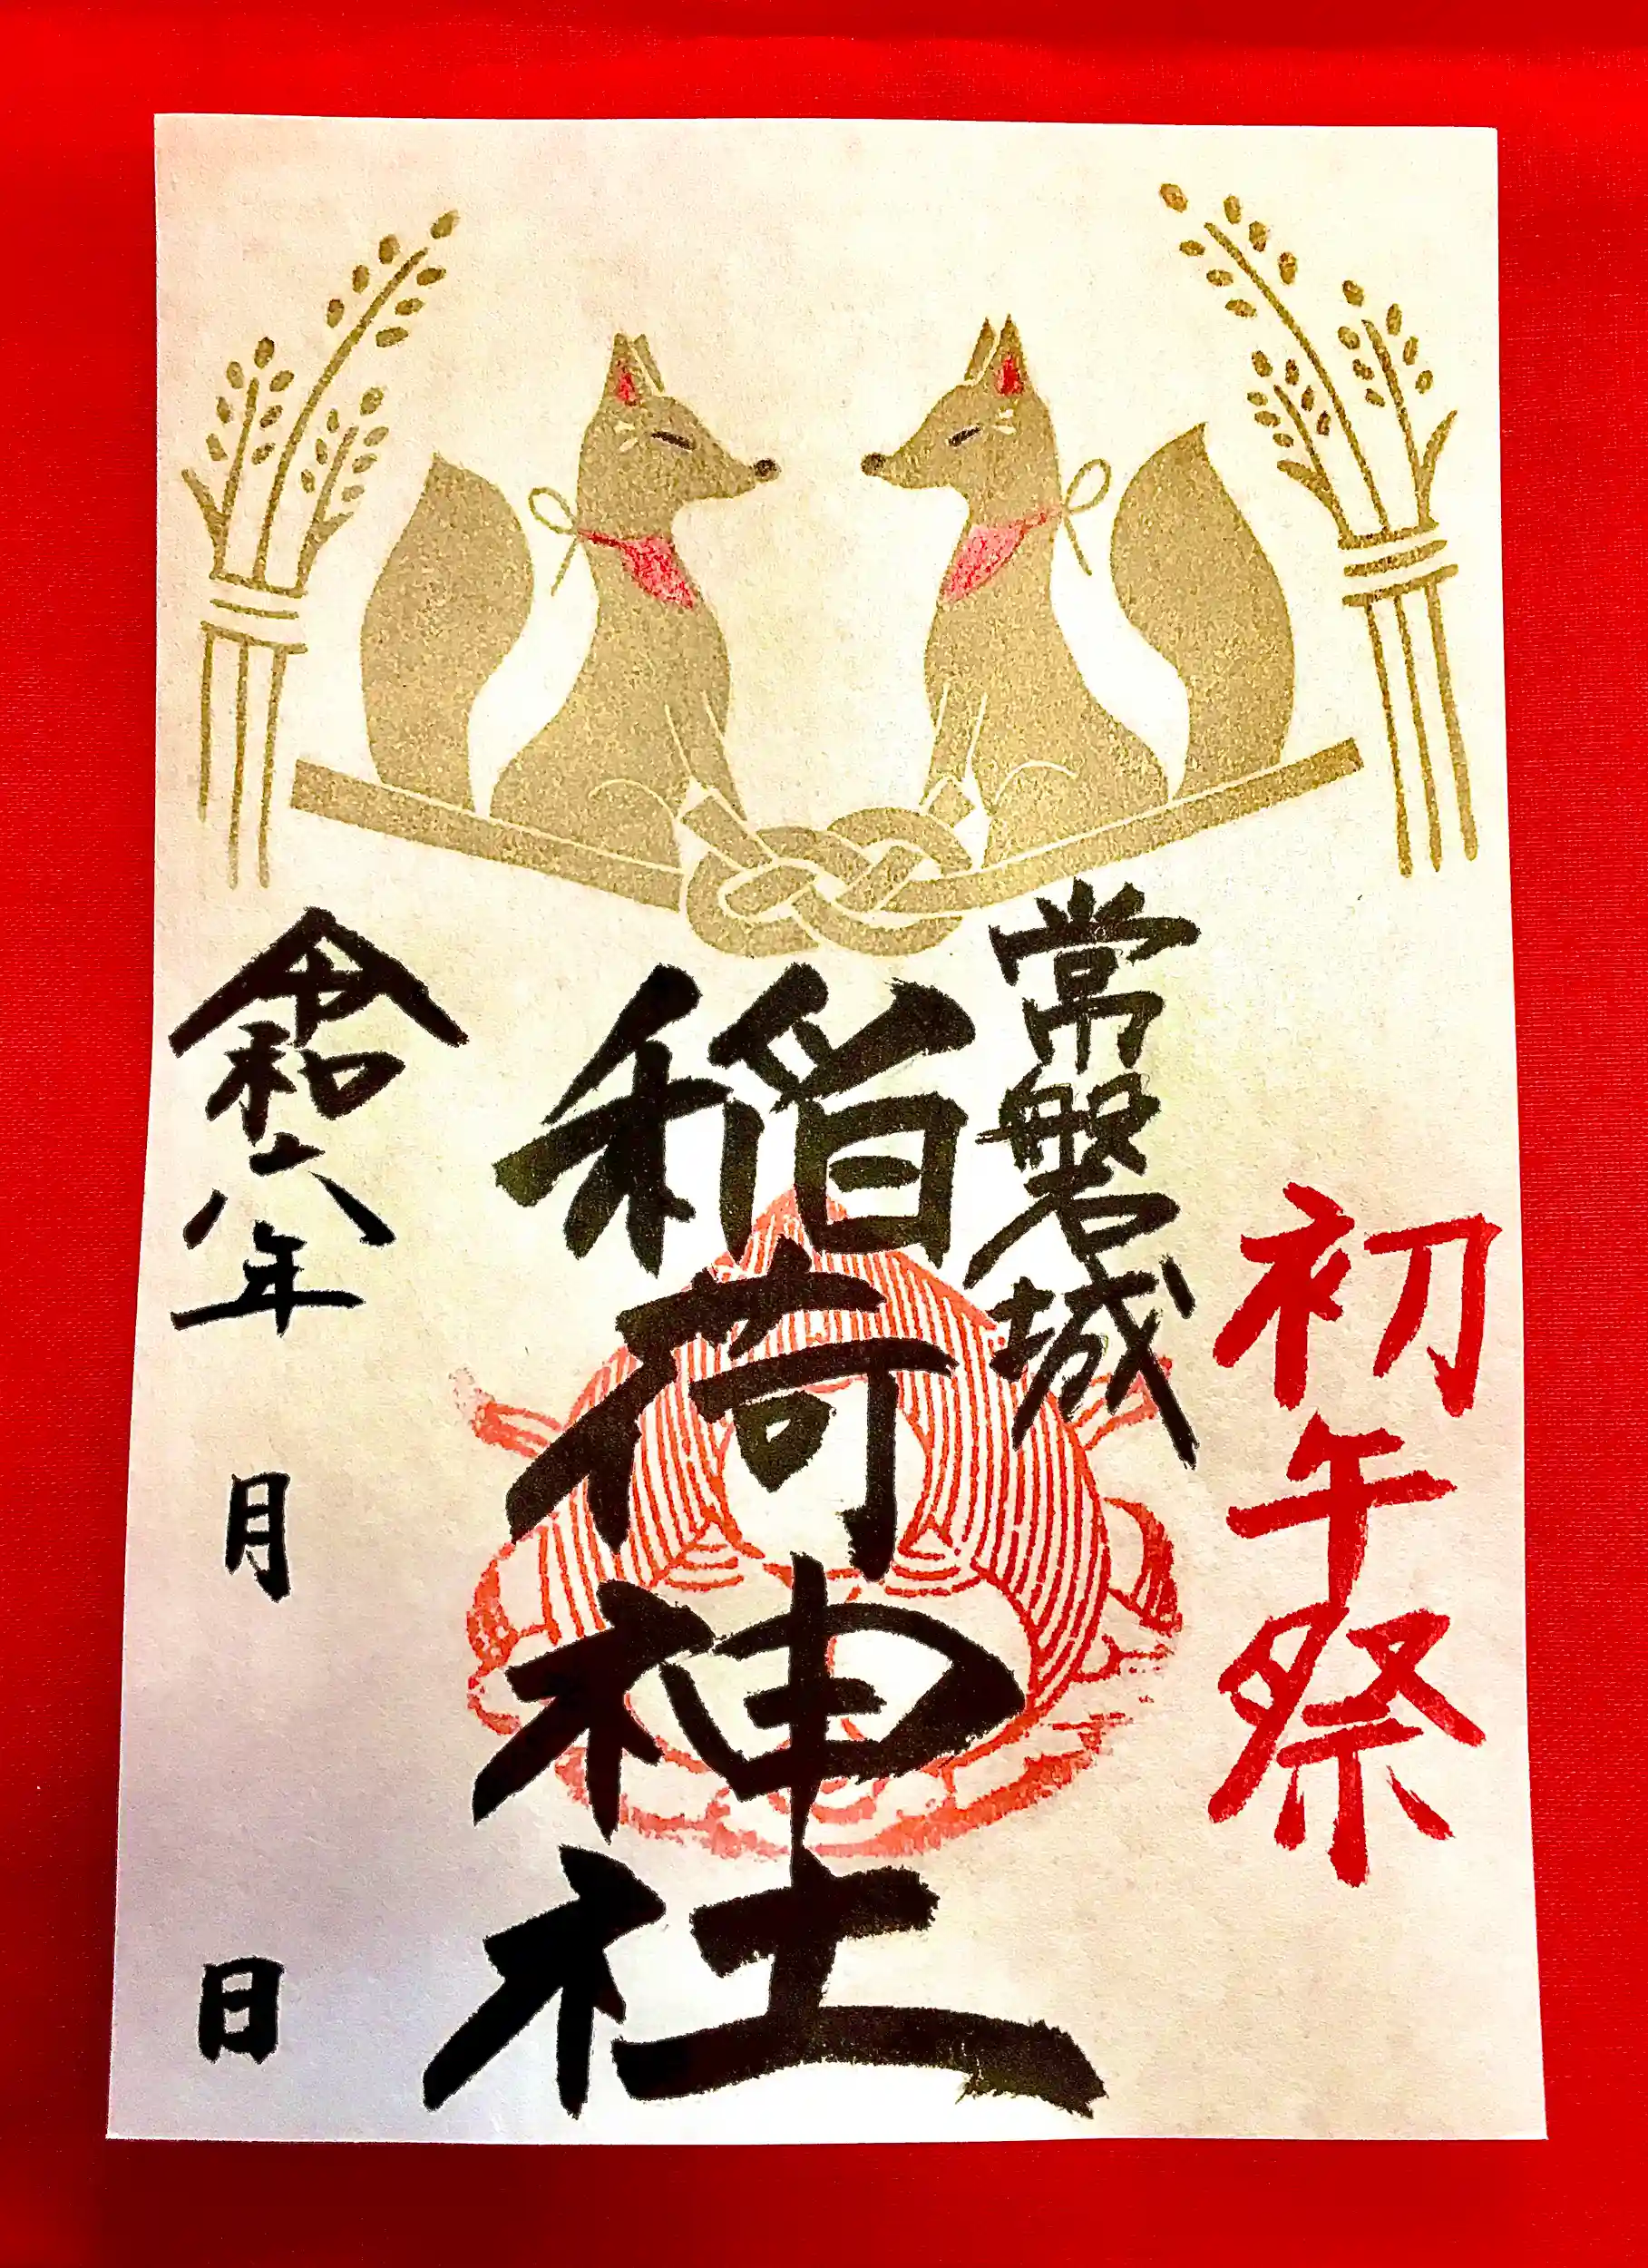 初午祭
常磐城
稲荷神社
令和六年 月 日